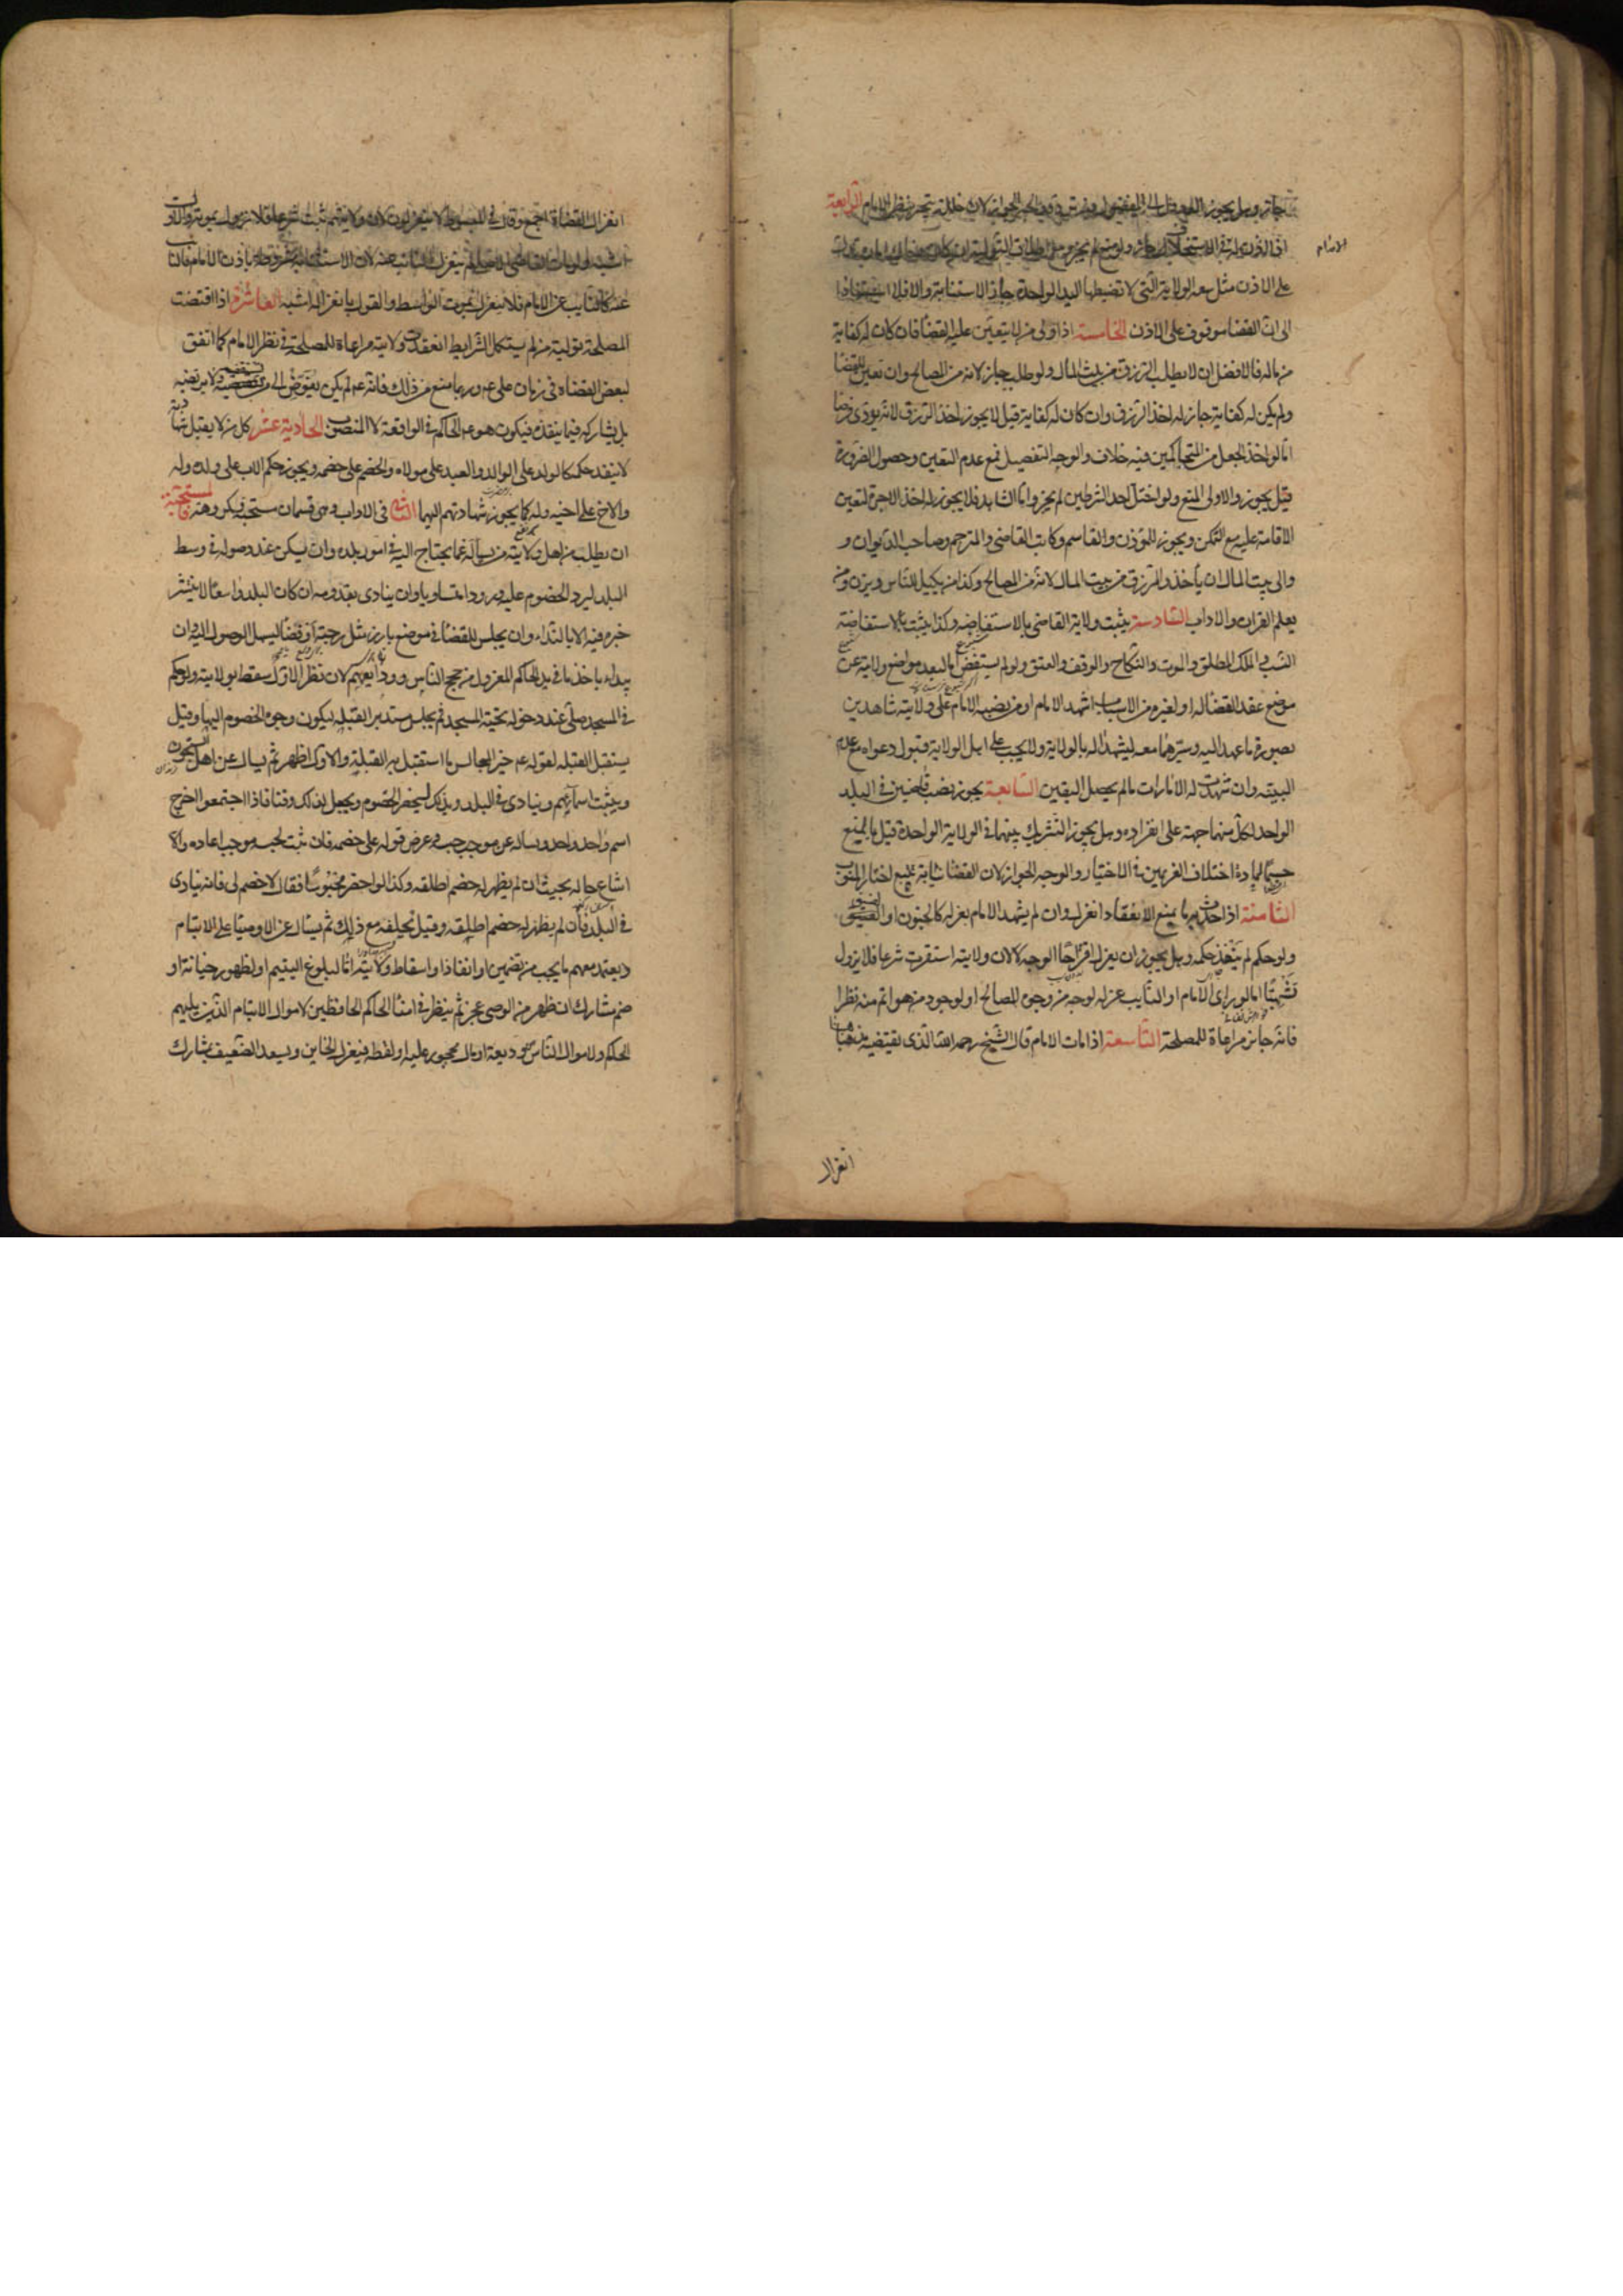 جائز وهل يجوز العدول الى المفضول فيه تردد والوجه الجواز لان خلله ينجبر بنظر الامام الرابعة
اذا اذن له الامام في الاستخلاف جاز ولو منع لم يجز ومع اطلاق التولية ان كان هناك امارة تدل
على الاذن مثل سعه الولاية التي لا تضبطها اليد الواحدة جاز الاستنابة والا فلا استنادا
الى ان القضا موقوف على الاذن الخامسة اذا ولى من لا يتعين عليه القضا فان كان له كفاية
من ماله فالافضل ان لا يطلب الرزق من بيت المال ولو طلب جاز لانه من المصالح وان تعين للقضا
ولم يكن له كفاية جاز له اخذ الرزق وان كان له كفاية قيل لا يجوز اخذ الرزق لانه يودى فرضا
اما لو اخذ الجعل من المتحاكمين فيه خلاف والوجه التفصيل فمع عدم التعين وحصول الضرورة
قيل يجوز والاولى المنع ولو اختل احد الشرطين لم يجز واما الشاهد فلا يجوز له اخذ الاجرة لتعين
الاقامة عليه مع التمكن ويجوز للمؤذن والقاسم وكاتب القاضى والمترجم وصاحب الديوان و
والى بيت المال ان يأخذوا الرزق من بيت المال لانه من المصالح وكذا من يكيل للناس ويزن ومن
يعلم القران والاداب السادسة يثبت ولاية القاضى بالاستفاضه وكذا يثبت بالاستفاضة
النسب و الملك المطلق والموت والنكاح والوقف والعتق ولو لم يستفض اما لبعد موضع ولايته عن
موضع عقد القضا له او لغيره من الاسباب اشهد الامام او من نصبه الامام على ولايته شاهدين
بصورة ما عهد اليه وسيرهما معه ليشهدا له بالولاية ولا يجب على اهل الولاية قبول دعواه مع عدم
البينه وان شهدت له الامارات ما لم يحصل اليقين السابعة يجوز نصب قاضيين في البلد
الواحد لكل منهما جهة على انفراده وهل يجوز التشريك بينهما في الولاية الواحدة قيل بالمنع
حسما لمادة اختلاف الغريمين في الاختيار والوجه الجواز لان القضا نيابة يتبع اختيار المنوب
الثامنة اذا حدث به ما يمنع الانعقاد انعزل وان لم يشهد الامام بعزله كالجنون او الفسق
ولو حكم لم ينفذ حكمه وهل يجوز ان يعزل اقتراحا الوجه لا لان ولايته استقرت شرعا فلا يزول
تشهيا اما لو راى الامام او النايب عزله لوجه من وجوه المصالح او لوجود من هو اتم منه نظرا
فانه جائز مراعاة للمصلحة التاسعة اذا مات الامام قال الشيخ رحمه الله الذى يقتضيه مذهبنا
انعزال
انعزال القضاة اجمع وقال في المبسوط لا ينعزلون لان ولايتهم ثبت شرعا فلا تزول بموته والاول
اشبه ولو مات القاضى الاصلى لم ينعزل النائب عنه لان الاستنابة مشروطة باذن الامام فالنائب
عنه كالنايب عن الامام فلا ينعزل بموت الواسط والقول بانعزاله اشبه العاشرة اذا اقتضت
المصلحة تولية من لم يستكمل الشرايط انعقدت ولايته مراعاة للمصلحة في نظر الامام كما اتفق
لبعض القضاة في زمان على عم وربما منع من ذلك فانه عم لم يكن يفوض الى من يستقضيه ولا يرتضيه
بل يشاركه فيما ينفذه فيكون هو عم الحاكم في الواقعة لا المنصوب الحادية عشر كل من لا يقبل شهادته
لا ينفد حكمه كالولد على الوالد والعبد على مولاه والخصم على خصمه ويجوز حكم الاب على ولده وله
والاخ على اخيه وله كما يجوز شهادتهم اليهما الثانى في الاداب وهى قسمان مستحبه فيكروهة فالمستحبة
ان يطلب من اهل ولايته من يساله عما يحتاج اليه في امور بلده وان يسكن عند وصوله في وسط
البلد ليرد الخصوم عليه ورودا متساويا وان ينادى بقدومه ان كان البلد واسعا لا ينتشر
خبره فيه الا بالنداء وان يجلس للقضا في موضع بارز مثل رحبة او فضا ليسهل الوصول اليه وان
يبداء باخذ ما في يد الحاكم المعزول من حجج الناس وودايعهم لان نظر الاول سقط بولايته ولو حكم
في المسجد صلى عند دخوله تحية المسجد ثم يجلس مستدبر القبله ليكون وجوه الخصوم اليها وقيل
يستقبل القبله لقوله عم خير المجالس ما استقبل به القبلة والاول اظهر ثم يسال عن اهل السجون
ويثبت اسمآئهم وينادى في البلد وبذلك ليحضر الخصوم ويجعل لذلك وقتا فاذا اجتمعوا اخرج
اسم واحد واحد وساله عن موجب حبسه وعرض قوله على خصمه فان ثبت لحبسه موجب اعاده والا
اشاع حاله بحيث ان لم يظهر له خصم اطلقه وكذا لو احضر محبوسا فقال لا خصم لى فانه ينادى
في البلد فان لم يظهر له خصم اطلقه وقيل يحلفه مع ذلك ثم يسال عن الاوصيآ على الايتام
ويعتمد معهم ما يجب من تضمين او انفاذ او اسقاط ولاية اما لبلوغ اليتيم او لظهور خيانة او
ضم مشارك ان ظهر من الوصى عجز ثم ينظر في امنآ الحاكم الحافظين لاموال الايتام الذين يليهم
الحاكم ولاموال الناس من وديعة او مال محجور عليه ولقطه فيعزل الخاين ويسعد الضعيف بمشارك